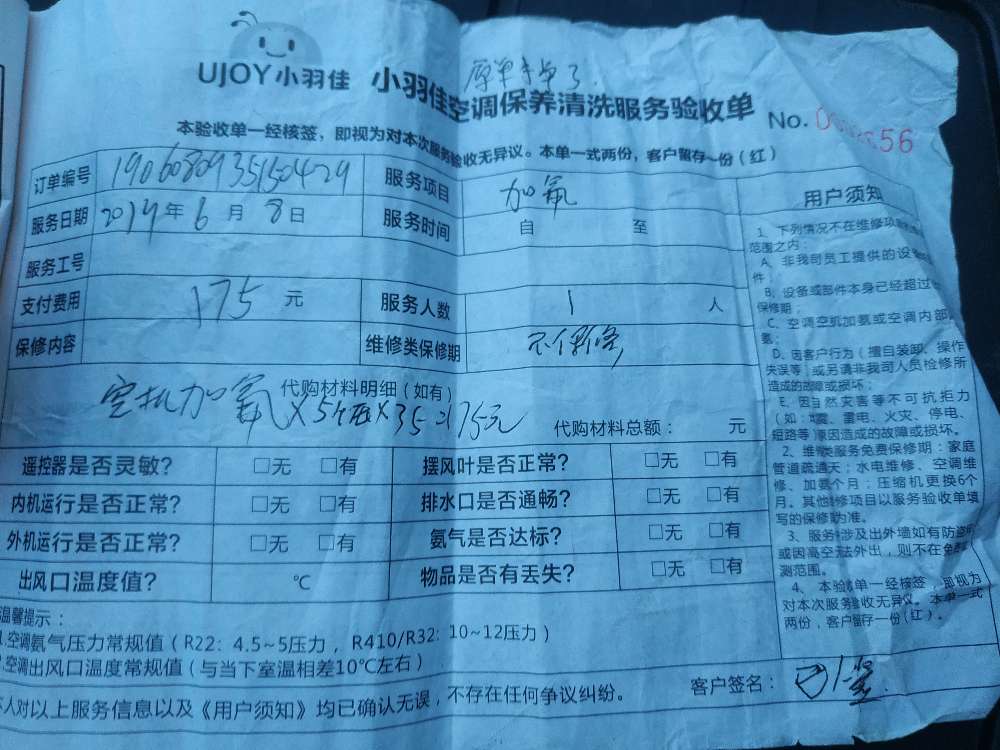 原单丢单了
UJOY小羽佳 小羽佳空调保养清洗服务验收单 No.
本验收单一经核签，即视为对本次服务验收无异议。本单一式两份，客户留存一份（红）
订单编号 服务项目 加氟
服务日期 2019年6月8日 服务时间 自 至
服务工号
支付费用 175元 服务人数 1人
保修内容 维修类保修期 不保修
代购材料明细（如有）
空机加氟X5个压X35=175元 代购材料总额： 元
遥控器是否灵敏? □无 □有 摆风叶是否正常? □无 □有
内机运行是否正常? □无 □有 排水口是否通畅? □无 □有
外机运行是否正常? □无 □有 氨气是否达标? □无 □有
出风口温度值? ℃ 物品是否有丢失? □无 □有
温馨提示：
1.空调氨气压力常规值（R22：4.5~5压力，R410/R32：10~12压力）
2.空调出风口温度常规值（与当下室温相差10℃左右）
本人对以上服务信息以及《用户须知》均已确认无误，不存在任何争议纠纷。 客户签名：
用户须知
1、下列情况不在维修项
范围之内：
A、非我司员工提供的设
件
B、设备或部件本身已经超过
保修期；
C、空调空机加氨或空调内部
氨；
D、因客户行为（擅自装卸、操作
失误等）或另请非我司人员检修所
造成的故障或损坏；
E、因自然灾害等不可抗拒力
（如：地震、雷电、火灾、停电、
短路等）原因造成的故障或损坏。
2、维修类服务免费保修期：家庭
管道疏通天；水电维修、空调维
修、加氨个月；压缩机更换6个
月。其他维修项目以服务验收单填
写的保修期为准。
3、服务涉及出外墙如有防盗
或因高空无法外出，则不在
测范围。
4、本验收单一经核签，即视为
对本次服务验收无异议。本单一式
两份，客户留存一份（红）。